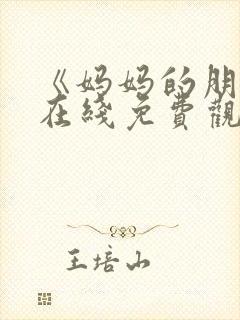 《妈妈的朋
在线免費觀
王培山